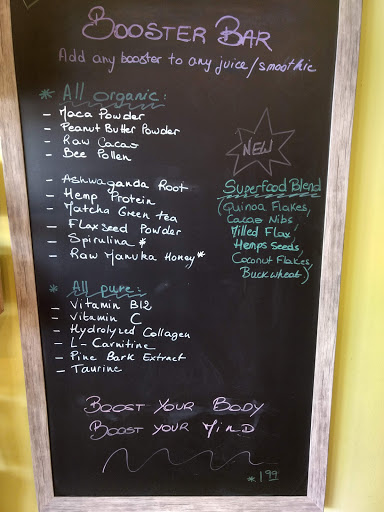 BOOSTER BAR
Add any booster to any juice/smoothie
* All organic:
- Maca Powder
- Peanut Butter Powder
- Raw Cacao
- Bee Pollen
- Ashwaganda Root
- Hemp Protein
- Matcha Green tea
- Flaxseed Powder
- Spirulina *
- Raw Manuka Honey *
NEW
Superfood Blend
(Quinoa Flakes,
Cacao Nibs,
Milled Flax,
Hemps Seeds,
Coconut Flakes,
Buckwheat)
* All pure:
- Vitamin B12
- Vitamin C
- Hydrolyzed Collagen
- L-Carnitine
- Pine Bark Extract
- Taurine
BOOST YOUR BODY
BOOST YOUR MIND
* 1.99